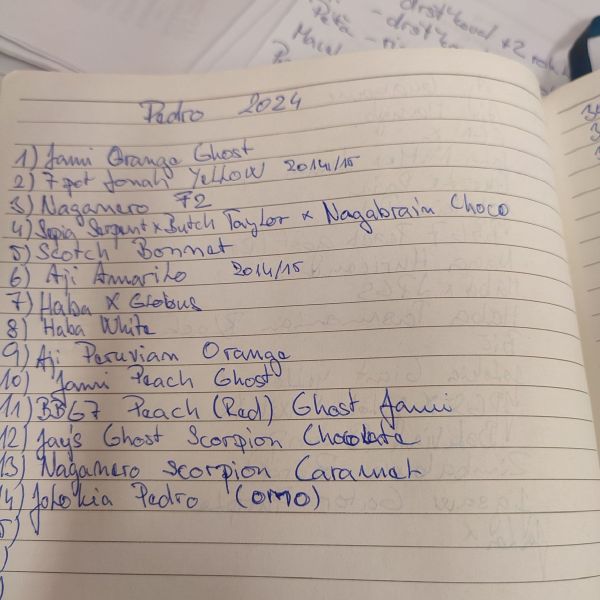 drštkoval +2
Peťa - drštkova
Marcel
Pedro 2024
1) Jami Orange Ghost
2) 7 pot Jonah Yellow 2014/15
3) Nagamero F2
4) Sepia Serpent x Butch Taylor x Nagabrain Choco
5) Scotch Bonnet
6) Aji Amarillo 2014/15
7) Haba x Globus
8) Haba White
9) Aji Peruvian Orange
10) Jami Peach Ghost
11) BBG7 Peach (Red) Ghost Jami
12) Jay's Ghost Scorpion Chocolate
13) Nagamero Scorpion Caramel
14) Jolokia Pedro (OMO)